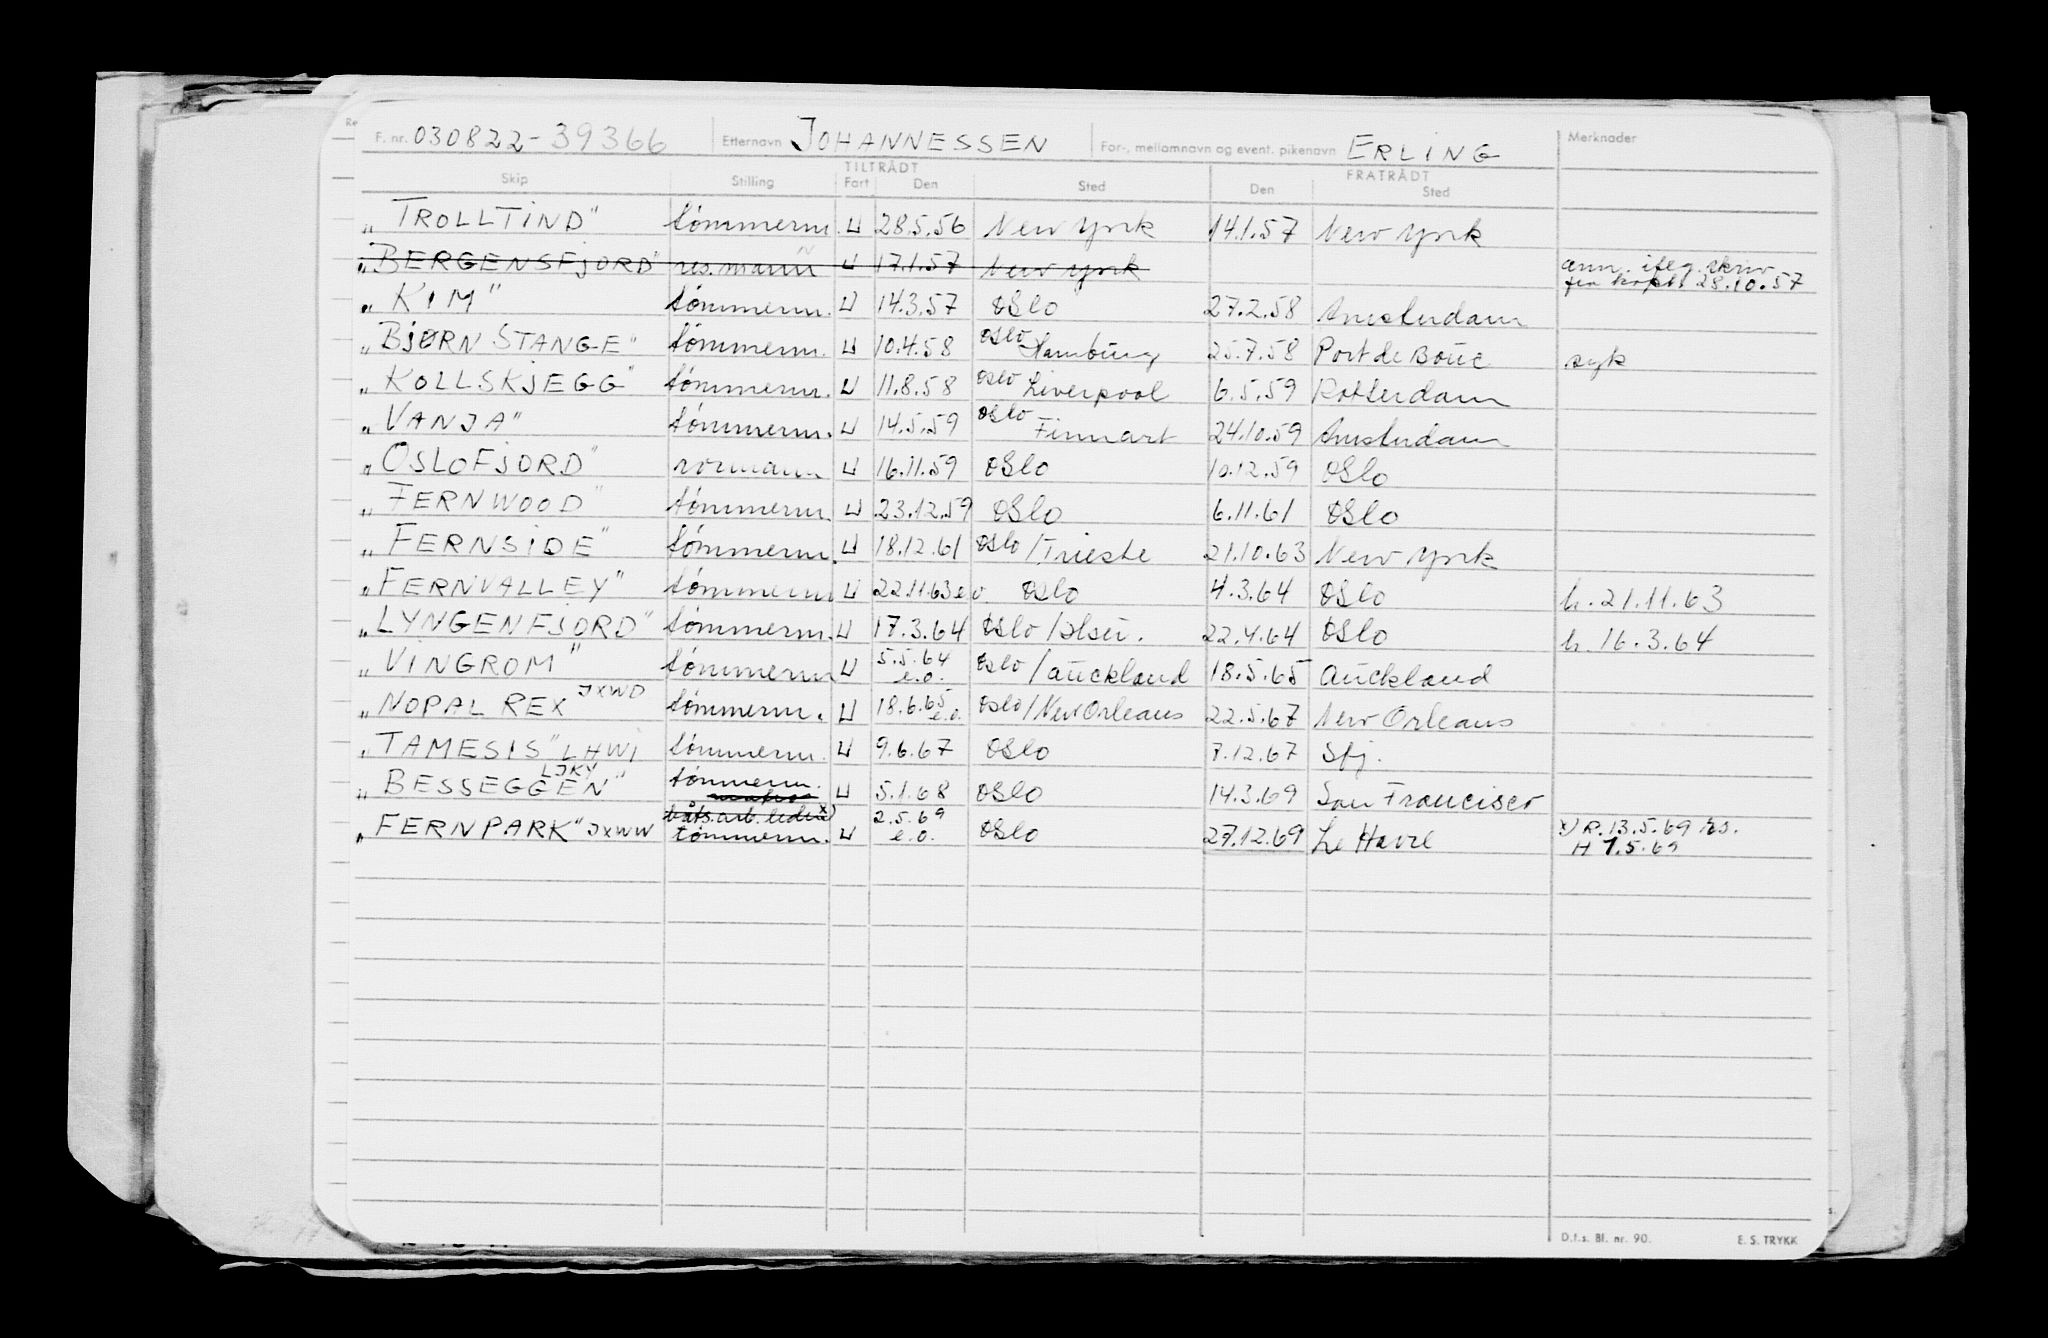 F. nr. 030822-39366 Etternavn JOHANNESSEN For-, mellomnavn og event. pikenavn ERLING Merknader
TILTRÅDT FRATRÅDT
Skip Stilling Fart Den Sted Den Sted
„TROLLTIND" tømmerm. U 28.5.56 New York 14.1.57 New York
„BERGENSFJORD" res.mann U 17.1.57 New York ann. ifølg. skriv
fra kapt. 28.10.57
„KIM" tømmerm. U 14.3.57 Oslo 27.2.58 Amsterdam
„BJØRN STANGE" tømmerm. U 10.4.58 Oslo Hamburg 25.7.58 Port de Bouc syk
„KOLLSKJEGG" tømmerm. U 11.8.58 Oslo Liverpool 6.5.59 Rotterdam
„VANJA" tømmerm. U 14.5.59 Oslo Finnart 24.10.59 Amsterdam
„OSLOFJORD" rormann U 16.11.59 Oslo 10.12.59 Oslo
„FERNWOOD" tømmerm. U 23.12.59 Oslo 6.11.61 Oslo
„FERNSIDE" tømmerm. U 18.12.61 Oslo/Trieste 21.10.63 New York
„FERNVALLEY" tømmerm U 22.11.63 e.o. Oslo 4.3.64 Oslo h. 21.11.63
„LYNGENFJORD" tømmerm. U 17.3.64 Oslo/ 22.4.64 Oslo h. 16.3.64
„VINGROM" tømmerm U 5.5.64 e.o. Oslo/Auckland 18.5.65 Auckland
„NOPAL REX JXWD tømmerm. U 18.6.65 e.o. Oslo/New Orleans 22.5.67 New Orleans
„TAMESIS" LHWI tømmerm. U 9.6.67 Oslo 7.12.67 Sfj.
„BESSEGGEN" LJKY tømmerm. U 5.1.68 Oslo 14.3.69 San Francisco
„FERNPARK" JXWW båts.arb.leder x) U 2.5.69 Oslo 27.12.69 Le Havre x) R. 13.5.69 rs.
tømmerm. e.o. H 1.5.69
D.f.s. Bl. nr. 90. E. S. TRYKK